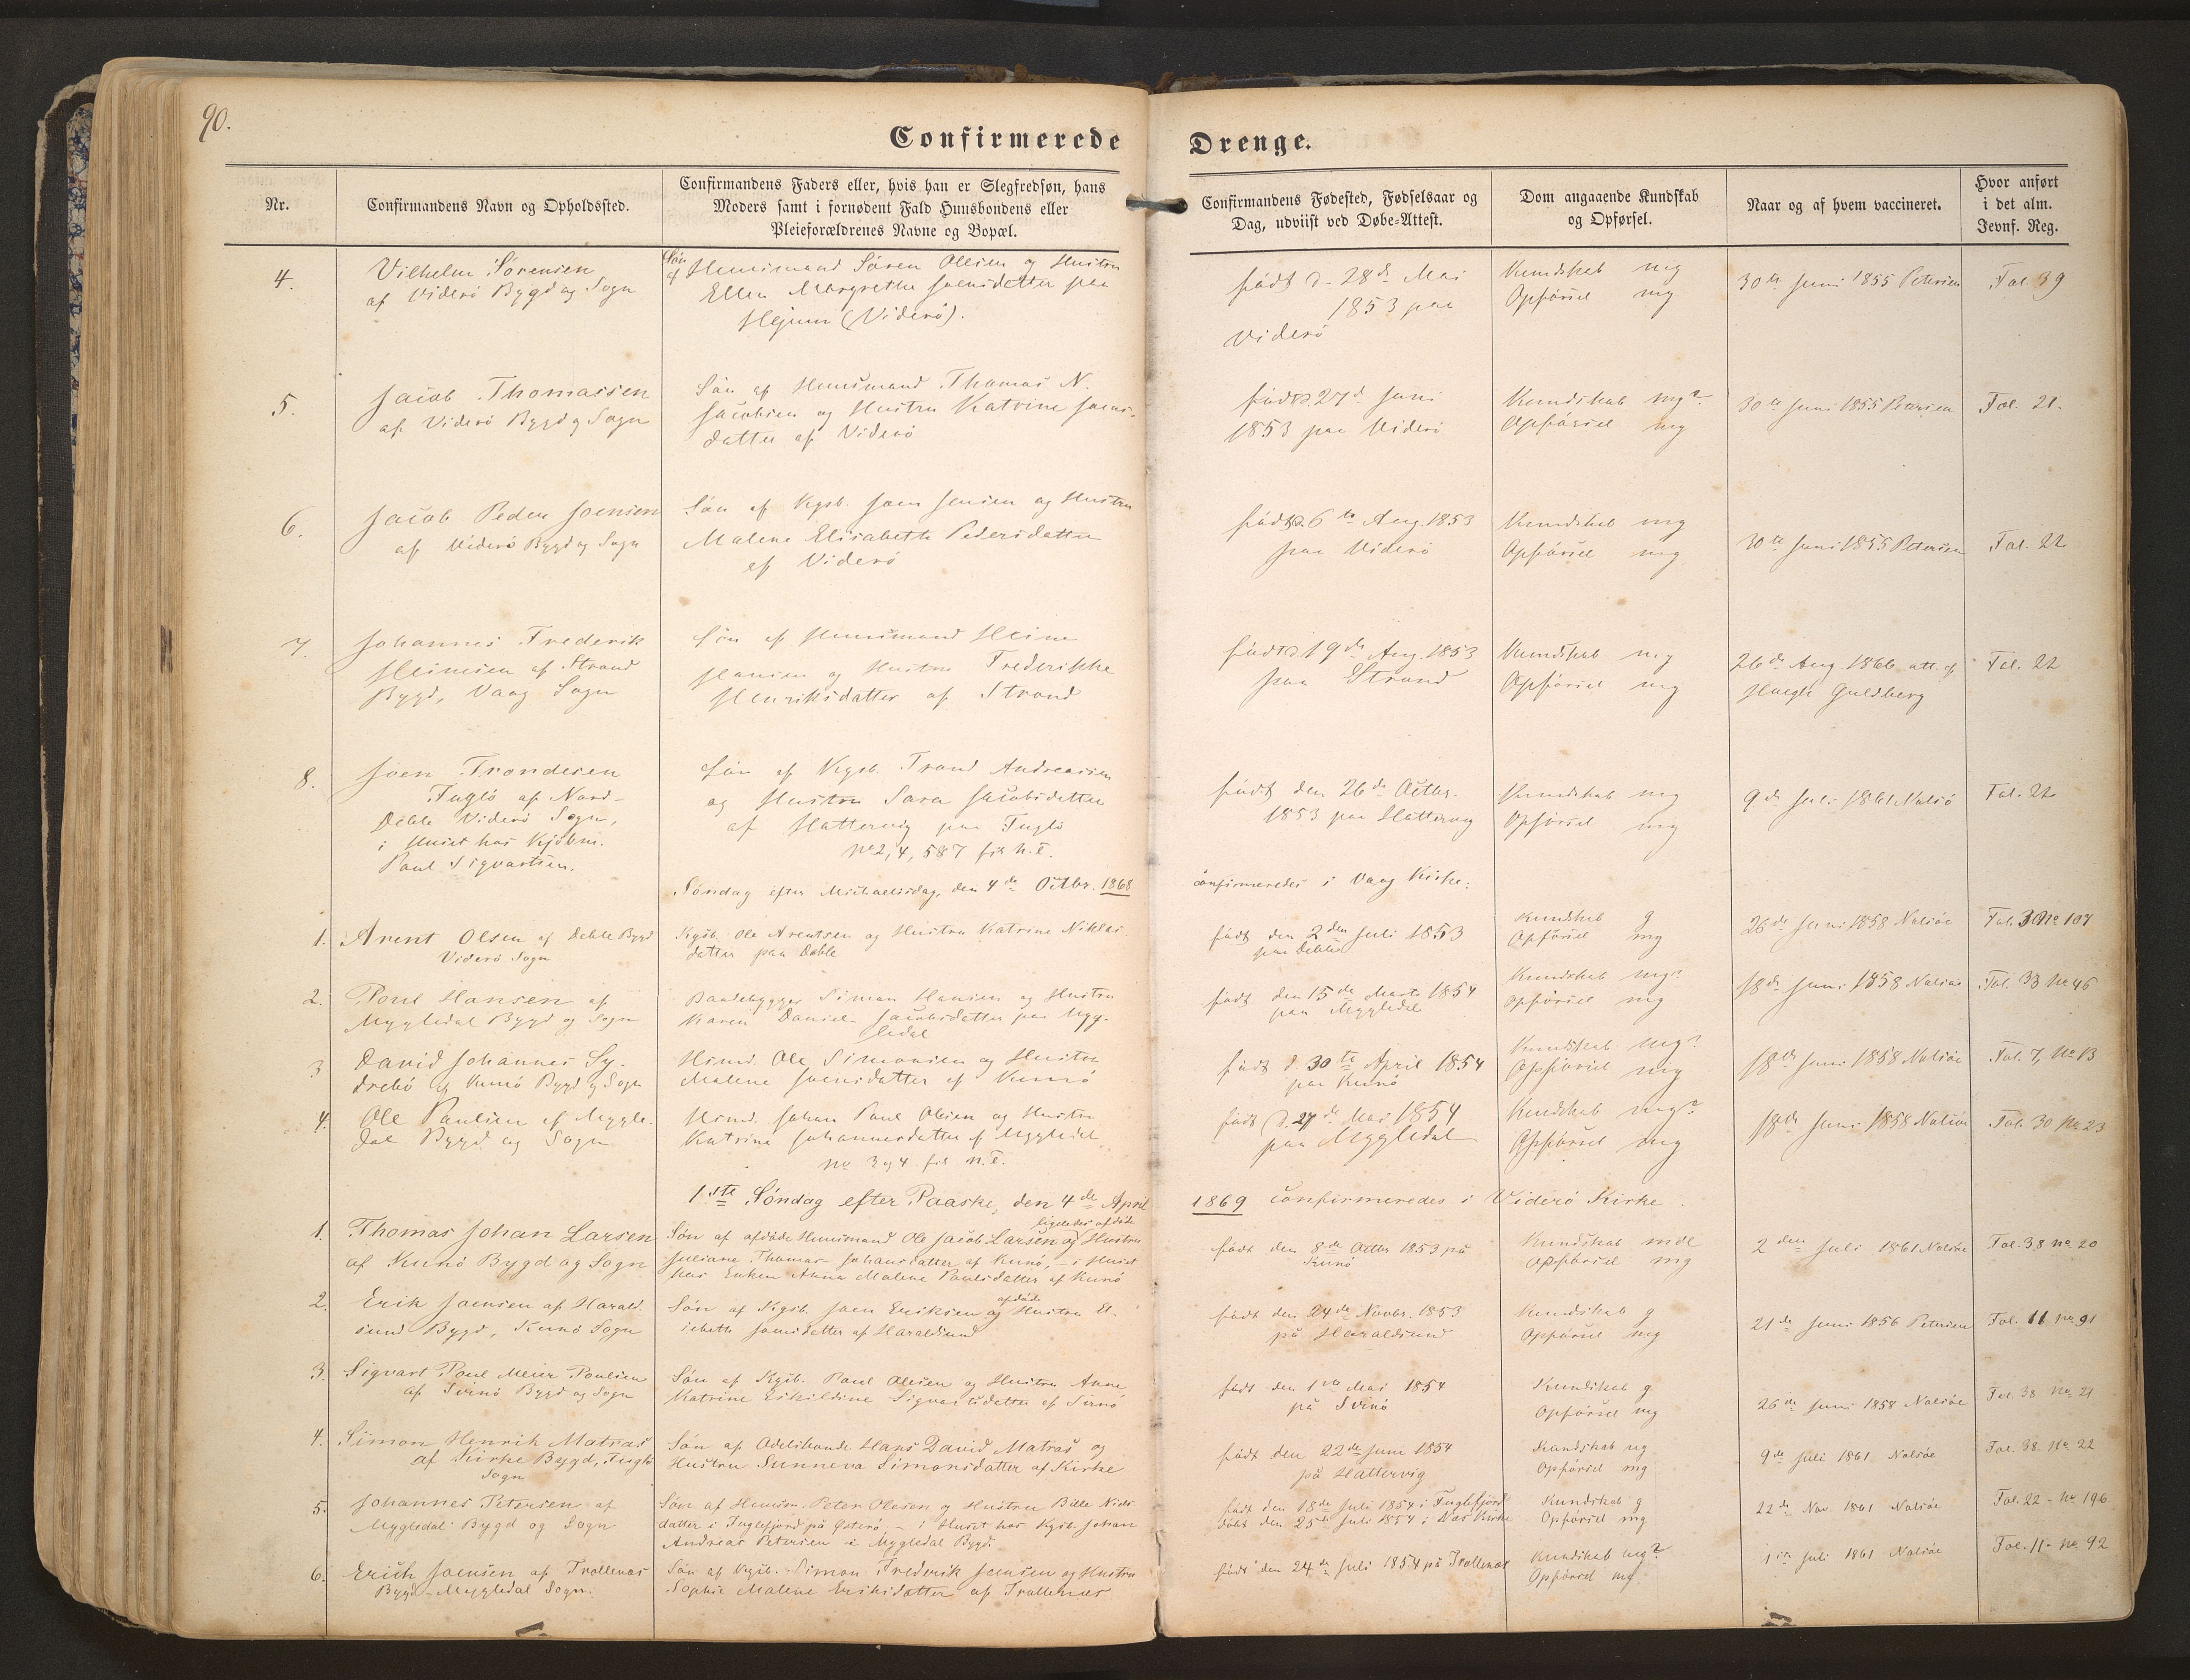 90.
Confirmerede Drenge.
Nr.
Confirmandens Navn og Opholdssted.
Confirmandens Faders eller, hvis han er Slegfredsøn, hans
Moders samt i fornødent Fald Huusbondens eller
Pleieforældrenes Navne og Bopæl.
Confirmandens Fødested, Fødselsaar og
Dag, udviist ved Døbe-Attest.
Dom angaaende Kundskab
og Opførsel.
Naar og af hvem vaccineret.
Hvor anført
i det alm.
Jevnf. Reg.
4.
Vilhelm Sørensen
af Viderö Bygd og Sogn
Søn af Huusmand Sören Olesen og Hustru
Ellen Margrethe Joensdatter paa
(Viderö).
födt d. 28de Mai
1853 paa
Viderö
Kundskab mg
Opförsel mg
30te Juni 1855 Petersen
Fol. 39
5.
Jacob Thomassen
af Viderö Bygd og Sogn
Sön af Huusmand Thomas N.
Jacobsen og Hustru Katrine Joens-
datter af Viderö
födt d. 27de Juni
1853 paa Viderö
Kundskab mg?
Opförsel mg
30te Juni 1855 Petersen
Fol. 21.
6.
Jacob Peder Joensen
af Viderö Bygd og Sogn
Sön af Kgsb. Joen Jensen og Hustru
Malene Elisabeth Pedersdatter
af Viderö
födt d. 6te Aug. 1853
paa Viderö
Kundskab mg
Opförsel mg
30te Juni 1855 Petersen
Fol. 22
7.
Johannes Frederik
Heinesen af Strand
Bygd, Vaag Sogn
Sön af Huusmand Heine
Hansen og Hustru Frederikke
Henriksdatter af Strand
födt d. 19de Aug. 1853
paa Strand
Kundskab mg
Opförsel mg
26de Aug 1866 att. af
Høegh Guldberg
Fol. 22
8.
Joen Trondesen
Fuglö af Nord-
Deble Viderö Sogn,
i Huset hos Kjöbm.
Poul Sigvartsen.
Sön af Kgsb. Trond Andreasen
og Hustru Sara Jacobsdatter
af Hattervig paa Fuglö
No 2, 4, 5 & 7 fik N.T.
födt den 26de Octbr.
1853 paa Hattervig
Kundskab mg
Opförsel mg
9de Juli 1861 Nolsö
Fol. 22
Söndag efter Michaelisdag, den 4de Octbr. 1868 confirmeredes i Vaag Kirke:
1.
Arent Olsen af Deble Bygd
Viderö Sogn
Kgsb. Ole Arentsen og Hustru Katrine Niklas-
datter paa Deble
födt den 2den Juli 1853
paa Deble
Kundskab g
Opförsel mg
26de Juni 1858 Nolsöe
Fol. 30 No 107
2.
Poul Hansen af
Mygledal Bygd og Sogn
Baadebygger Simon Hansen og Hustru
Karen Daniel- Jacobsdatter paa Myg-
ledal
födt den 15de Marts 1854
paa Myggledal
Kundskab mg?
Opförsel mg
18de Juni 1858 Nolsöe
Fol. 33 No 46
3
David Johannes Sy-
drebö af Kunö Bygd og Sogn
Hsmd. Ole Simonsen og Hustru
Malene Joensdatter af Kunö
födt d. 30te April 1854
paa Kunö
Kundskab mg?
Opförsel mg
18de Juni 1858 Nolsöe
Fol. 7, No 13
4.
Ole Paulsen af Myggle-
dal Bygd og Sogn
Hsmd. Johan Poul Olsen og Hustru
Katrine Johannesdatter af Myggledal
No 3 og 4 fik N.T.
födt d. 27de Mai 1854
paa Myggledal
Kundskab mg?
Opförsel mg
18de Juni 1858 Nolsöe
Fol. 30 No 23
1ste Söndag efter Paaske, den 4de April 1869 confirmeredes i Viderö Kirke.
1.
Thomas Johan Larsen
af Kunö Bygd og Sogn
ligeledes afdöde
Sön af afdöde Huusmand Ole Jacob Larsen og Hustru
Juliane Thomas- Johansdatter af Kunö, - i Huset
hos Enken Anna Malene Poulsdatter af Kunö
födt den 8de Octbr 1853 på
Kunö
Kundskab mdl
Opförsel mg
2den Juli 1861 Nolsöe
Fol. 38 No 20
2.
Erik Joensen af Harald-
sund Bygd, Kunö Sogn
afdöde
Sön af Kgsb. Joen Eriksen og Hustru El-
sebeth Joensdatter af Haraldsund
födt den 24de Novbr. 1853
på Haraldsund
Kundskab g
Opförsel mg
21de Juni 1856 Petersen
Fol. 11 No 91
3.
Sigvart Poul Meier Poulsen
af Svinö Bygd og Sogn
Sön af Kgsb. Poul Olesen og Hustru Anne
Katrine Eskildine Sigvartsdatter af Svinö
födt den 1ste Mai 1854
på Svinö
Kundskab g
Opförsel mg
26de Juni 1858 Nolsöe
Fol. 38 No 21
4.
Simon Henrik Matras
af Kirke Bygd, Fuglö
Sogn
Sön af Odelsbonde Hans David Matras og
Hustru Sunneva Simonsdatter af Kirke
födt den 22de Juni 1854
på Hattervig
Kundskab mg
Opförsel mg
9de Juli 1861 Nolsöe
Fol. 38. No 22
5.
Johannes Petersen af
Mygledal Bygd og Sogn
Sön af Huusm. Peter Olesen og Hustru Bille Niels-
datter i Fuglefjord på Österö, - i Huset hos Kgsb. Johan
Andreas Petersen i Mygledal Bygd.
födt den 18de Juli 1854 i Fuglefjord
döbt den 25de Juli 1854 i Næs Kirke
Kundskab g
Opförsel mg
22de Nov. 1861 Nolsöe
Fol. 22 - No 196
6.
Erich Joensen af Trollenæs
Bygd - Myggledal Sogn.
Sön af Kgsb. Simon Frederik Joensen og Hustru
Sophie Malene Eriksdatter af Trollenæs
födt den 24de Juli 1854 på Trollenæs
Kundskab mg?
Opförsel mg
1ste Juli 1861 Nolsöe
Fol. 11 - No 92